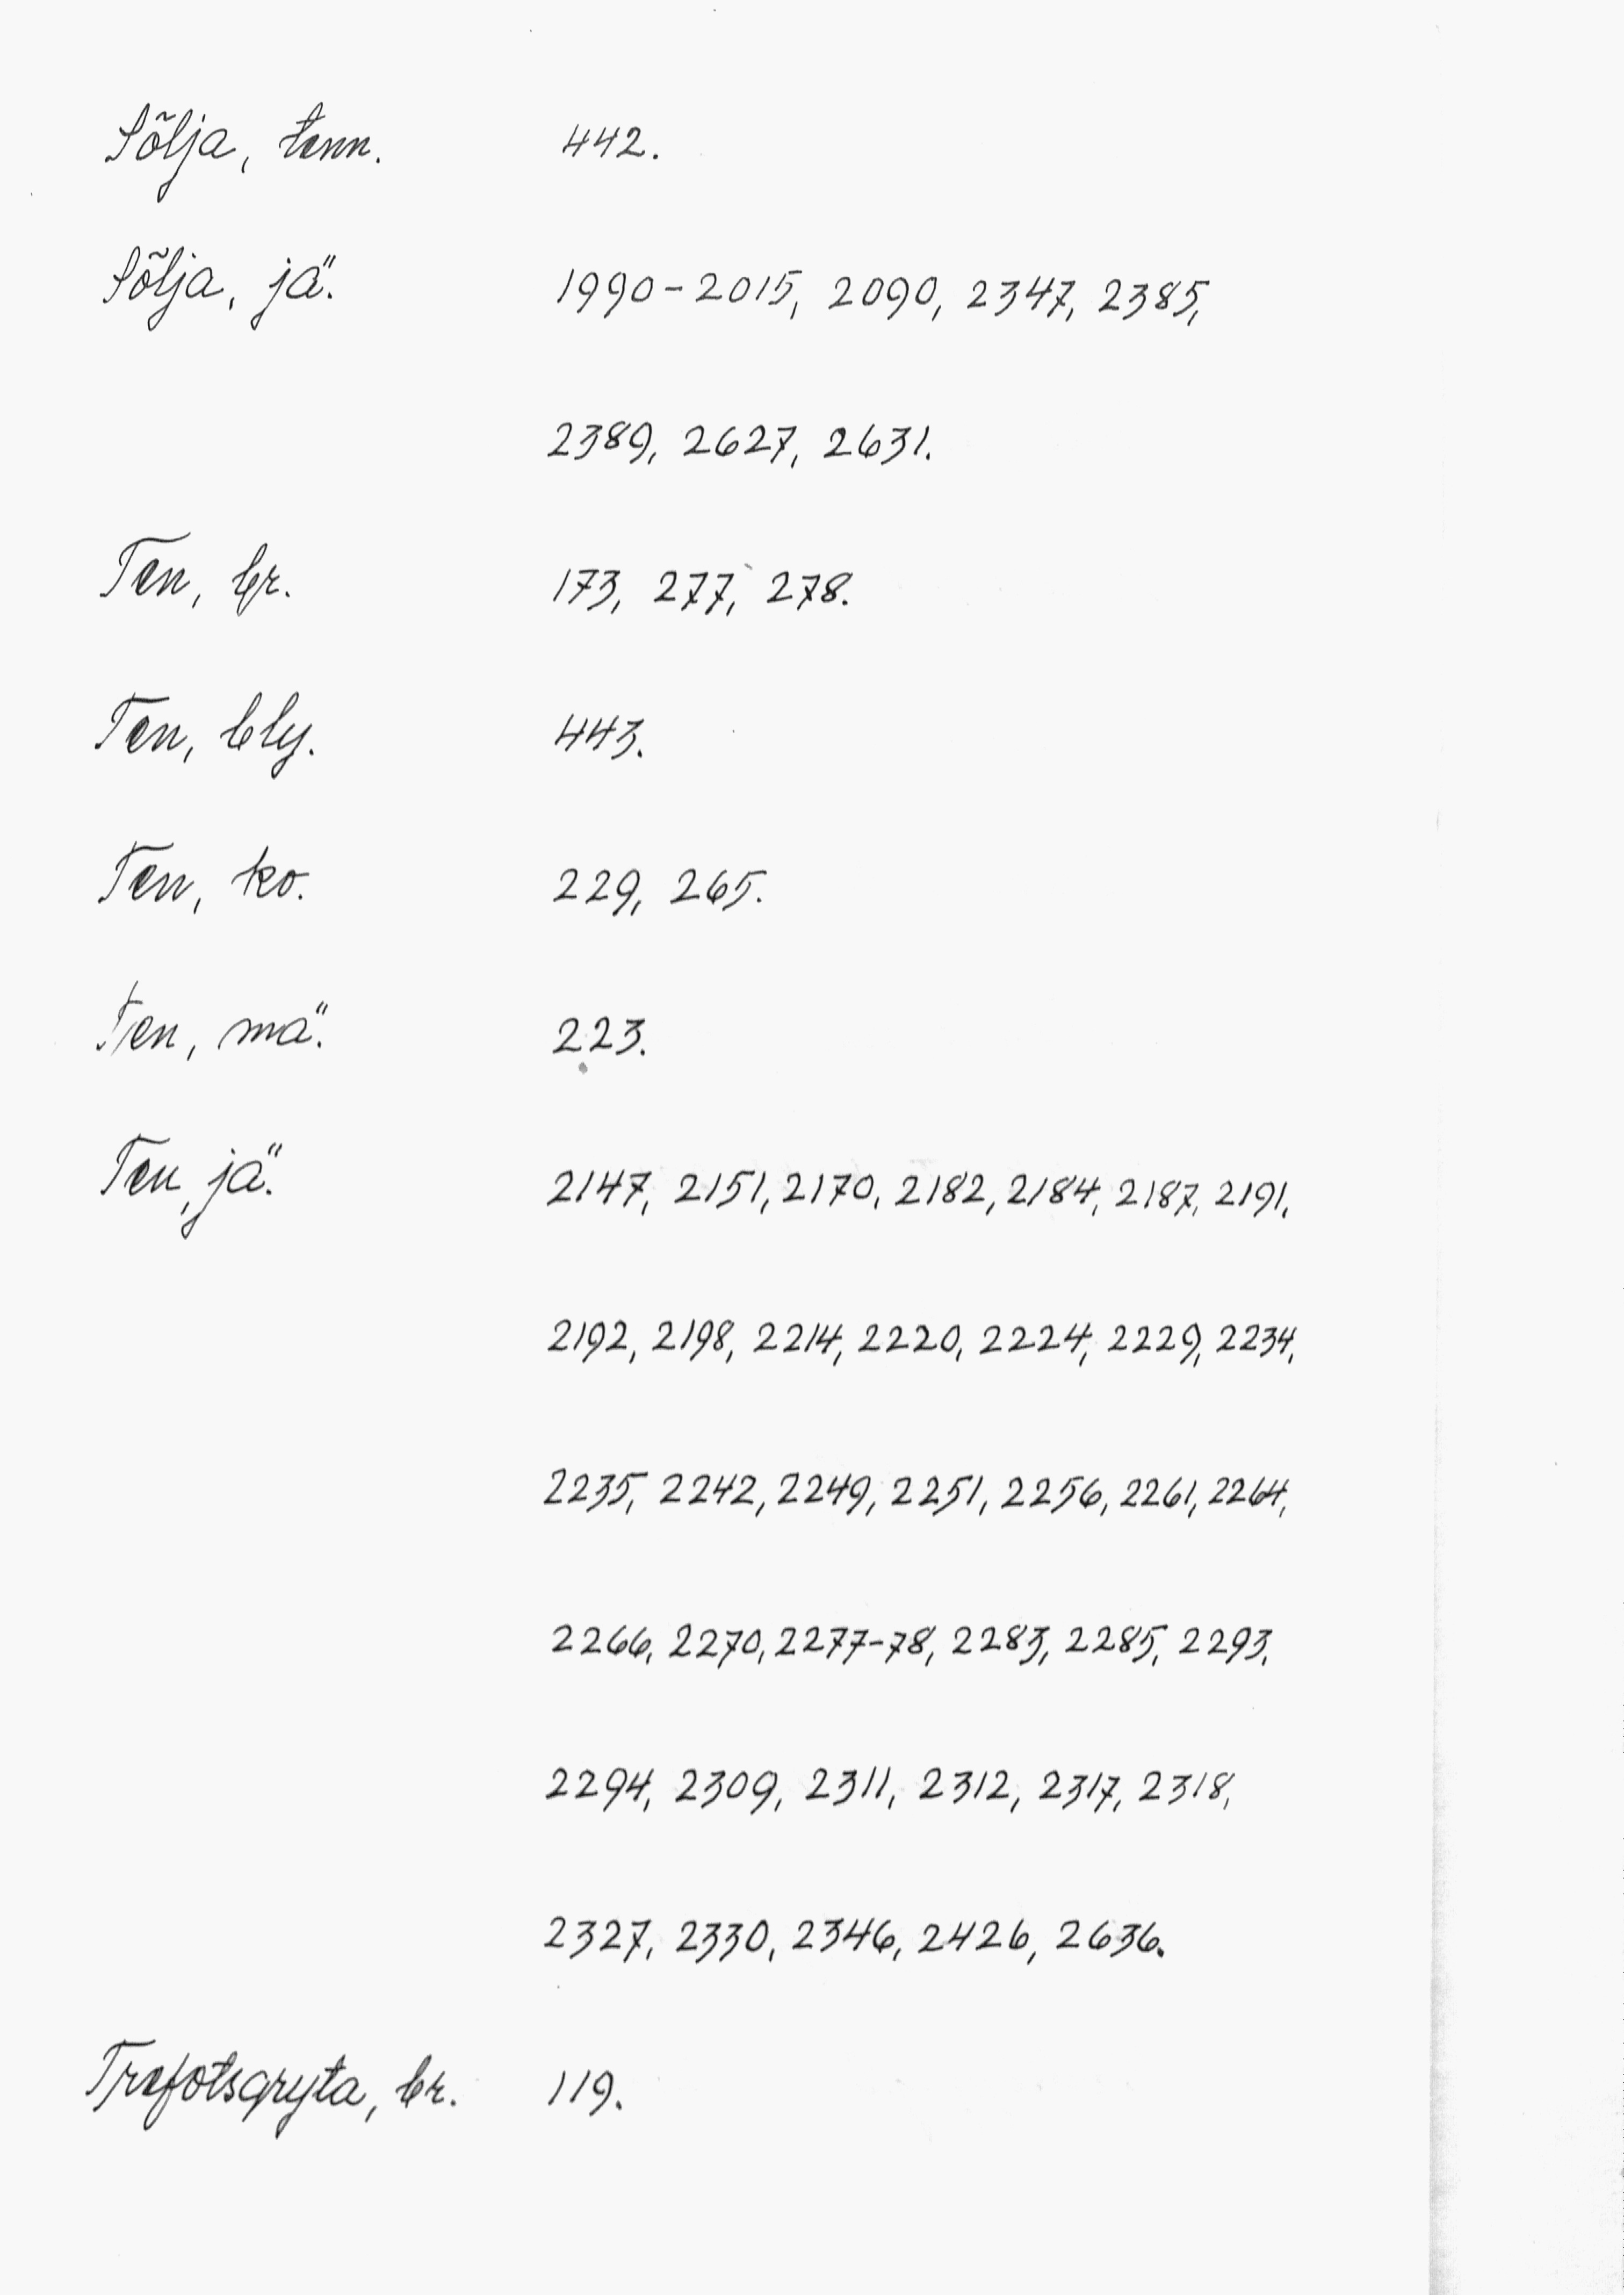 Sölja, tenn. 442.
Sölja, jä. 1990-2015, 2090, 2347, 2385,
2389, 2627, 2631.
Ten, br. 173, 277, 278.
Ten, bly. 443.
Ten, ko. 229, 265.
Ten, mä. 223.
Ten, jä. 2147, 2151, 2170, 2182, 2184, 2187, 2191,
2192, 2198, 2214, 2220, 2224, 2229, 2234,
2235, 2242, 2249, 2251, 2256, 2261, 2264,
2266, 2270, 2277-78, 2283, 2285, 2293,
2294, 2309, 2311, 2312, 2317, 2318,
2327, 2330, 2346, 2426, 2636.
Trefotsgryta, br. 119.